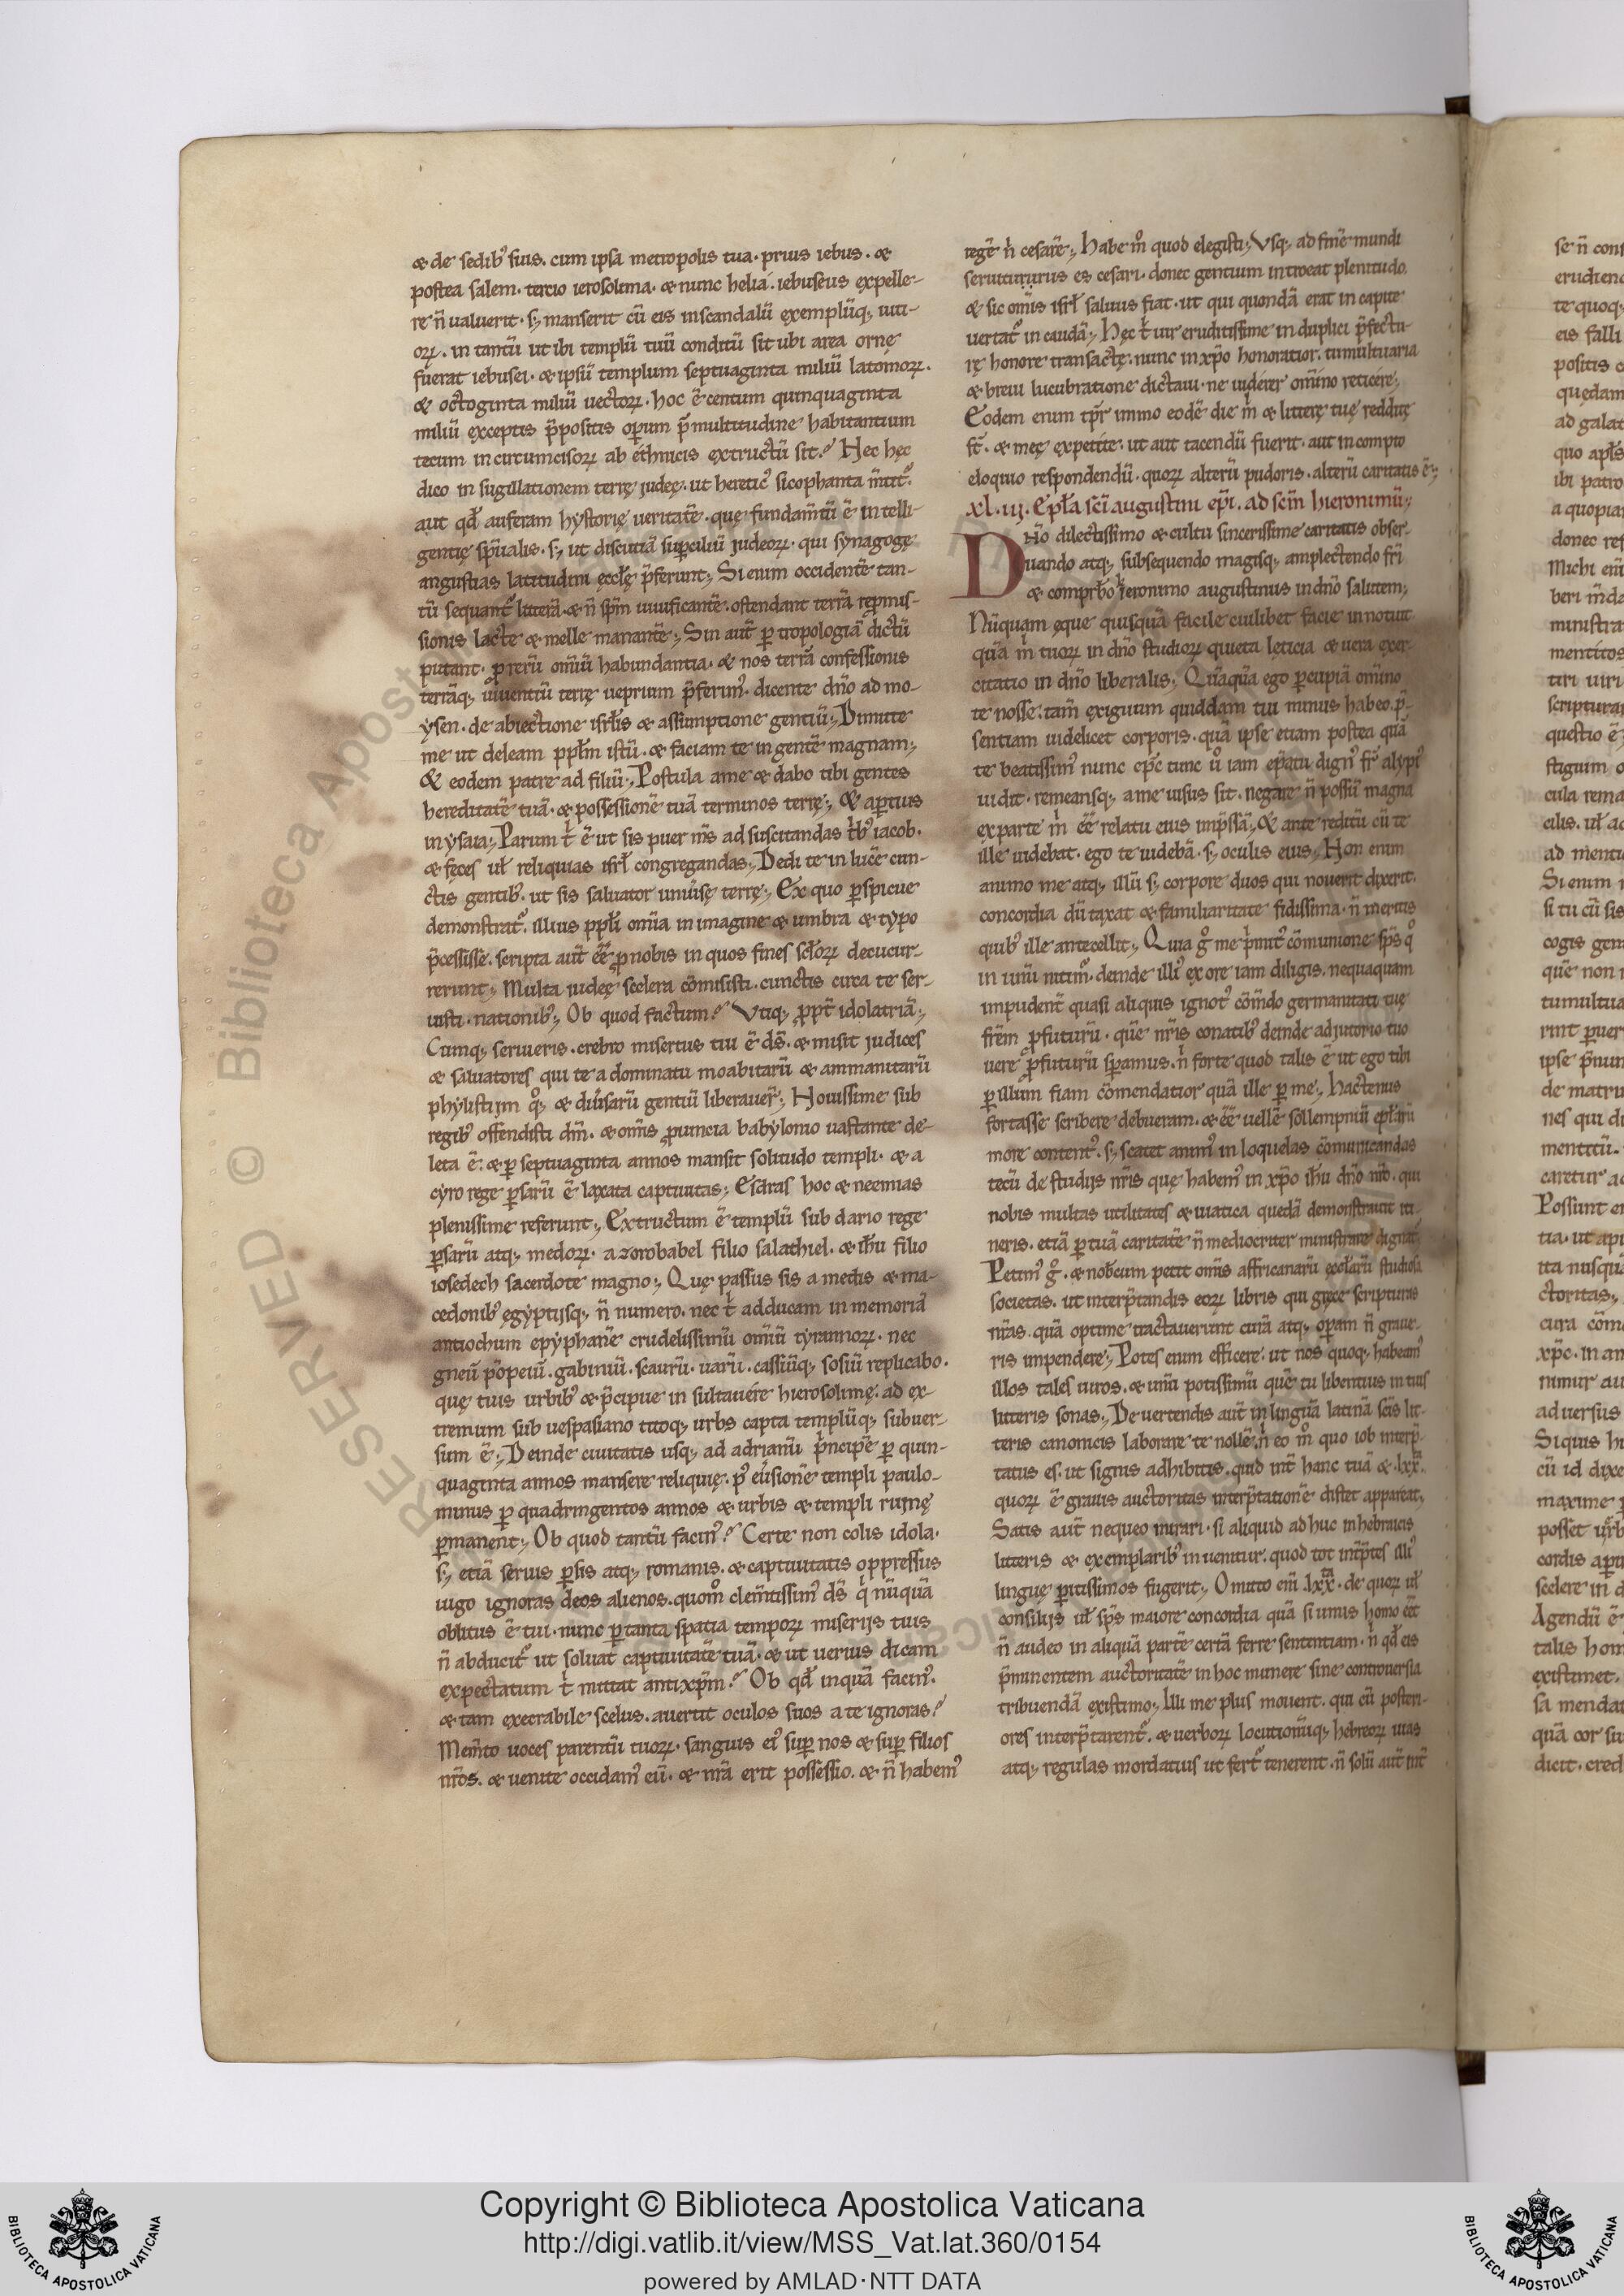 & de sedib᾽ suis. cum ipsa metropolis tua. prius iebus. &
postea salem. tercio ierosolima. & nunc helia. iebuseus expelle-
re n̄ ualuerit. s; manserit cū eis inscandalū exemplūq; uiti-
oꝝ. in tantū ut ibi templū tuū conditū sit ubi area ornę
fuerat iebusei. & ipsū templum septuaginta miliū latomoꝝ.
& octoginta miliū uectoꝝ. hoc ē centum quinquaginta
miliū exceptis p̄positis operum p̄ multitudine habitantium
tecum incircumcisoꝝ ab ethnicis extructū sit? Nec hęc
dico in sugillationem terrę judeę. ut heretic᾽ sicophanta m̄tit᾽.
aut qđ auferam hystorię ueritatē. quę fundam̄tū ē intelli-
gentię sp̄ualis. s; ut discutiā suꝑciliū judeoꝝ. qui synagogę
angustias latitudini ęccłę p̄ferunt; Si enim occidentē tan-
tū sequant᾽ litterā. & n̄ sp̄m uiuificantē. ostendant terrā repmis-
sionis lacte & melle manantē; Sin aut̄ ꝑ tropologiā dictū
putant. ꝓ rerū omniū habundantia. & nos terrā confessionis
terrāq; uiuentiū terrę ueprium p̄ferim᾽. dicente dn̄o ad mo-
ysen. de abiectione isrł̄is & assumptione gentiū; Dimitte
me ut deleam pplm̄ istū. & faciam te in gentē magnam;
& eodem patre ad filiū; Postula a me & dabo tibi gentes
hereditatē tuā. & possessionē tuā terminos terrę; & aꝑtius
in ysaia; Parum t̍ ē ut sis puer m̄s ad suscitandas tb᾽ iacob.
& feces uł reliquias isrł congregandas; Dedi te in lucē cun-
ctis gentib᾽. ut sis saluator uniūsę terrę; Ex quo ꝑspicue
demonstrat᾽. illius ppłi om̄ia in imagine & umbra & typo
p̄cessisse. scripta aut̄ ēē ꝓ nobis in quos fines scłoꝝ decucur-
rerunt; Multa judeę scelera cōmisisti. cunctis circa te ser-
uisti. nationib᾽; Ob quod factum? Vtiq; ꝓpt̄ idolatriā;
Cumq; seruieris. crebro misertus tui ē ds̄. & misit judices
& saluatores qui te a dominatu moabitarū & ammanitarū
phylistijm qͦ; & diūsarū gentiū liberauer̄; Nouissime sub
regib᾽ offendisti dm̄. & om̄is ꝓuincia babylonio uastante de-
leta ē. & ꝑ septuaginta annos mansit solitudo templi. & a
cyro rege ꝑsarū ē laxata captiuitas; Esdras hoc & neemias
plenissime referunt; Extructum ē templū sub dario rege
ꝑsarū atq; medoꝝ. a zorobabel filio salathiel. & ih̄u filio
iosedech sacerdote magno; Quę passus sis a medis & ma-
cedonib᾽ egyptijsq; n̄ numero. nec t̍ adducam in memoriā
antiochum epyphanē crudelissimū omniū tyrannoꝝ. nec
gneū pōpeiū. gabiniū. scaurū. uarū. cassiūq; sosiū replicabo.
quę tuis urbib᾽ & p̄cipue insultauere hierosolimę. ad ex-
tremum sub uespasiano titoq; urbs capta templūq; subuer-
sum ē; Deinde ciuitatis usq; ad adrianū p̄ncipē ꝑ quin-
quaginta annos mansere reliquię. p᾽ eūsionē templi paulo-
minus ꝑ quadringentos annos & urbis & templi ruinę
ꝑmanent; Ob quod tantū facin᾽? Certe non colis idola.
s; etiā seruis ꝑsis atq; romanis. & captiuitatis oppressus
iugo ignoras deos alienos. quom̊ clem̄tissim᾽ ds̄ q̍ nūquā
oblitus ē tui. nunc ꝑ tanta spatia tempoꝝ miserijs tuis
n̄ abducit᾽ ut soluat captiuitatē tuā. & ut uerius dicam
expectatum t̍ mittat antixp̄m? Ob qđ inquā facin᾽.
& tam execrabile scelus. auertit oculos suos a te ignoras?
Mem̄to uoces parentū tuoꝝ. sanguis ei᾽ suꝑ nos & suꝑ filios
nr̄os. & uenite occidam᾽ eū. & nr̄a erit possessio. & n̄ habem᾽
regē n̍ cesarē; Habe m̊ quod elegisti; Vsq; ad finē mundi
seruiturus es cesari. donec gentium introeat plenitudo
& sic om̄is isrł saluus fiat. ut qui quondā erat in capite
uertat᾽ in caudā; Hęc t̍ uir eruditissime in duplici p̄fectu-
rę honore transacte. nunc in xp̄o honoratior. tumultuaria
& breui lucubratione dictaui. ne uiderer om̄ino reticere;
Eodem enim tpr̄ immo eodē die m̍ & litterę tuę redditę
st̄. & meę expetite. ut aut tacendū fuerit. aut incompto
eloquio respondendū. quoꝝ alterū pudoris. alterū caritatis ē;
xl. iij. Epła scī augustini epī. ad scm̄ hieronimū;
DNō dilectissimo & cultu sincerissime caritatis obser-
uando atq; subsequendo magisq; amplectendo frī
& comprb̄o Ieronimo augustinus in dn̄o salutem;
Nūquam ęque quisquā facile cuilibet facie innotuit
quā m̍ tuoꝝ in dn̄o studioꝝ quieta lęticia & uera exer-
citatio in dn̄o liberalis; Quāquā ego ꝑcupiā om̄ino
te nosse. tam̄ exiguum quiddam tui minus habeo. p̄-
sentiam uidelicet corporis. quā ipse etiam postea quā
te beatissim᾽ nunc ep̄c tunc ů iam ep̄atu dign᾽ fr̄ alypi᾽
uidit. remeansq; a me uisus sit. negare n̄ possū magna
ex parte m̍ ēē relatu eius imp̄ssā; & ante reditū cū te
ille uidebat. ego te uidebā. s; oculis eius; Non enim
animo me atq; illū s; corpore duos qui nouerit dixerit.
concordia dū taxat & familiaritate fidissima. n̄ meritis
quib᾽ ille antecellit; Quia g̊ me p̍mit᾽ cōmunione sp̄s q̊
in unū nitim᾽. deinde illi᾽ ex ore iam diligis. nequaquam
impudent̄ quasi aliquis ignot᾽ cōm̄do germanitati tuę
frēm ꝓfuturū. quē nr̄is conatib᾽ deinde adjutorio tuo
uere ꝓfuturū sꝑamus. n̍ forte quod talis ē ut ego tibi
ꝑ illum fiam cōmendatior quā ille ꝑ me; Hactenus
fortasse scribere debueram. & ēē uellē sollempniū epłarū
more content᾽. s; scatet anim᾽ in loquelas cōmunicandas
tecū de studijs nr̄is quę habem᾽ in xp̄o ih̄u dn̄o nr̄o. qui
nobis multas utilitates & uiatica quedā demonstrauit iti-
neris. etiā ꝑ tuā caritatē n̄ mediocriter ministrare dignat᾽
Petim᾽ g̊. & nobcum petit om̄is affricanarū ęccłarū studiosa
societas. ut interp̄tandis eoꝝ libris qui grece scripturas
nr̄as. quā optime tractauerunt curā atq; oꝑam n̄ graue-
ris impendere; Potes enim efficere. ut nos quoq; habeam᾽
illos tales uiros. & unū potissimū quē tu libentius in tuis
litteris sonas; De uertendis aut̄ in linguā latinā scīs lit-
teris canonicis laborare te nollē. n̍ eo m̊ quo iob interp̄-
tatus es. ut signis adhibitis. quid int̄ hanc tuā & .lxx̄.
quoꝝ ē grauis auctoritas interp̄tationē distet appareat;
Satis aut̄ nequeo mirari. si aliquid adhuc in hebraicis
litteris & exemplarib᾽ inuenitur. quod tot int̄p̄tes illi᾽
linguę ꝑitissimos fugerit; Omitto enī .lxx̄. de quoꝝ uł
consilijs uł sp̄s maiore concordia quā si unus homo ēet
n̄ audeo in aliquā partē certā ferre sententiam. n̍ qđ eis
p̄minentem auctoritatē in hoc munere sine controuersia
tribuendā existimo; Illi me plus mouent. qui cū posteri-
ores interp̄tarent᾽. & uerboꝝ locutionūq; hebreoꝝ uias
atq; regulas mordatius ut fert᾽ tenerent. n̄ solū aut̄ int̄
se n̄ cons
erudien
te quoq;
eis falli
positis
quedam
ad galat
quo apłs
ibi patro
a quopia
donec res
Michi
beri
ministra
mentitos
tiri uiri
scriptura
questio ē
stigium
cula rema
cilis. uł
ad menti
Si enim
si tu cū sis
cogis gen
quē non
tumultua
rint ꝑuer
ipse
de matri
nes qui di
mentitū.
caretur
Possunt
tia. ut api
ita nusquā
ctoritas;
cura cōm
xp̄c. in an
nimur au
aduersus
Siquis hi
cū id dixe
maxime
posset
cordis aꝑti
scelere in
Agendū ē
talis hom
existimet.
sa menda
quā cor su
dicit. cred
Copyright © Biblioteca Apostolica Vaticana
http://digi.vatlib.it/view/MSS_Vat.lat.360/0154
powered by AMLAD·NTT DATA
BIBLIOTECA APOSTOLICA VATICANA
BIBLIOTECA APOSTOLICA VATICANA